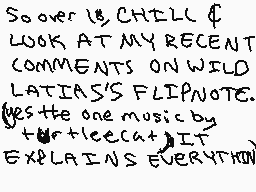 So over it, CHILL &
LOOK AT MY RECENT
COMMENTS ON WILD
LATIAS'S FLIPNOTE.
(yes the one music by
turtleecat) IT
EXPLAINS EVERYTHIN